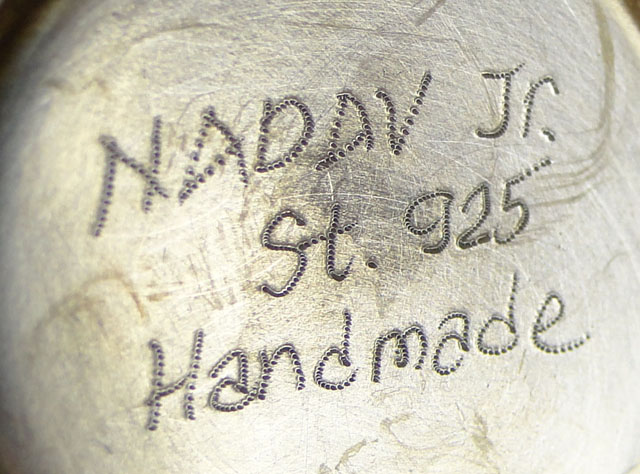 NADAV Jr.
St. 925
Handmade